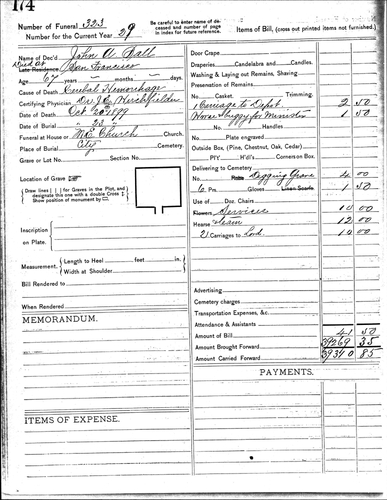 174
Number of Funeral 323
Number for the Current Year 29
Be careful to enter name of deceased and number of page in index for future reference.
Items of Bill, (cross out printed items not furnished.)
Name of Dec'd John A Ball
Died at
Late Residence, San Francisco
Age 67 years – months – days.
Cause of Death Cerebral Hemorhage
Certifying Physician Dr. J. C. Hirschfilder
Date of Death Oct 20 1899
Date of Burial " 23 "
Funeral at House or M.E. Church Church.
Place of Burial City Cemetery.
Grave or Lot No. Section No.
Location of Grave
Draw lines [ ] for Graves in the Plot, and designate this one with a double Cross. Show position of monument by
Inscription
on Plate.
Measurement. Length to Heel feet in.
Width at Shoulder "
Bill Rendered to
When Rendered
MEMORANDUM.
ITEMS OF EXPENSE.
Door Crape
Draperies Candelabra and Candles.
Washing & Laying out Remains, Shaving
Preservation of Remains
No. Casket, Trimming.
1 Carriage to Depot. 2 50
Horse & buggy for Minister 1 50
No. Handles
Plate engraved
Outside Box, (Pine, Chestnut, Oak, Cedar)
Ply H'd's Corners on Box.
Delivering to Cemetery
No. Digging Grave 4 00
6 Pm. Gloves Linen Scarfs. 1 50
Use of Doz. Chairs
Flowers Services 10 00
Hearse Team 12 00
2 Carriages to 10 00
Advertising
Cemetery charges
Transportation Expenses, &c.
Attendance & Assistants
Amount of Bill 41 50
Amount Brought Forward 39269 35
Amount Carried Forward 39310 85
PAYMENTS.